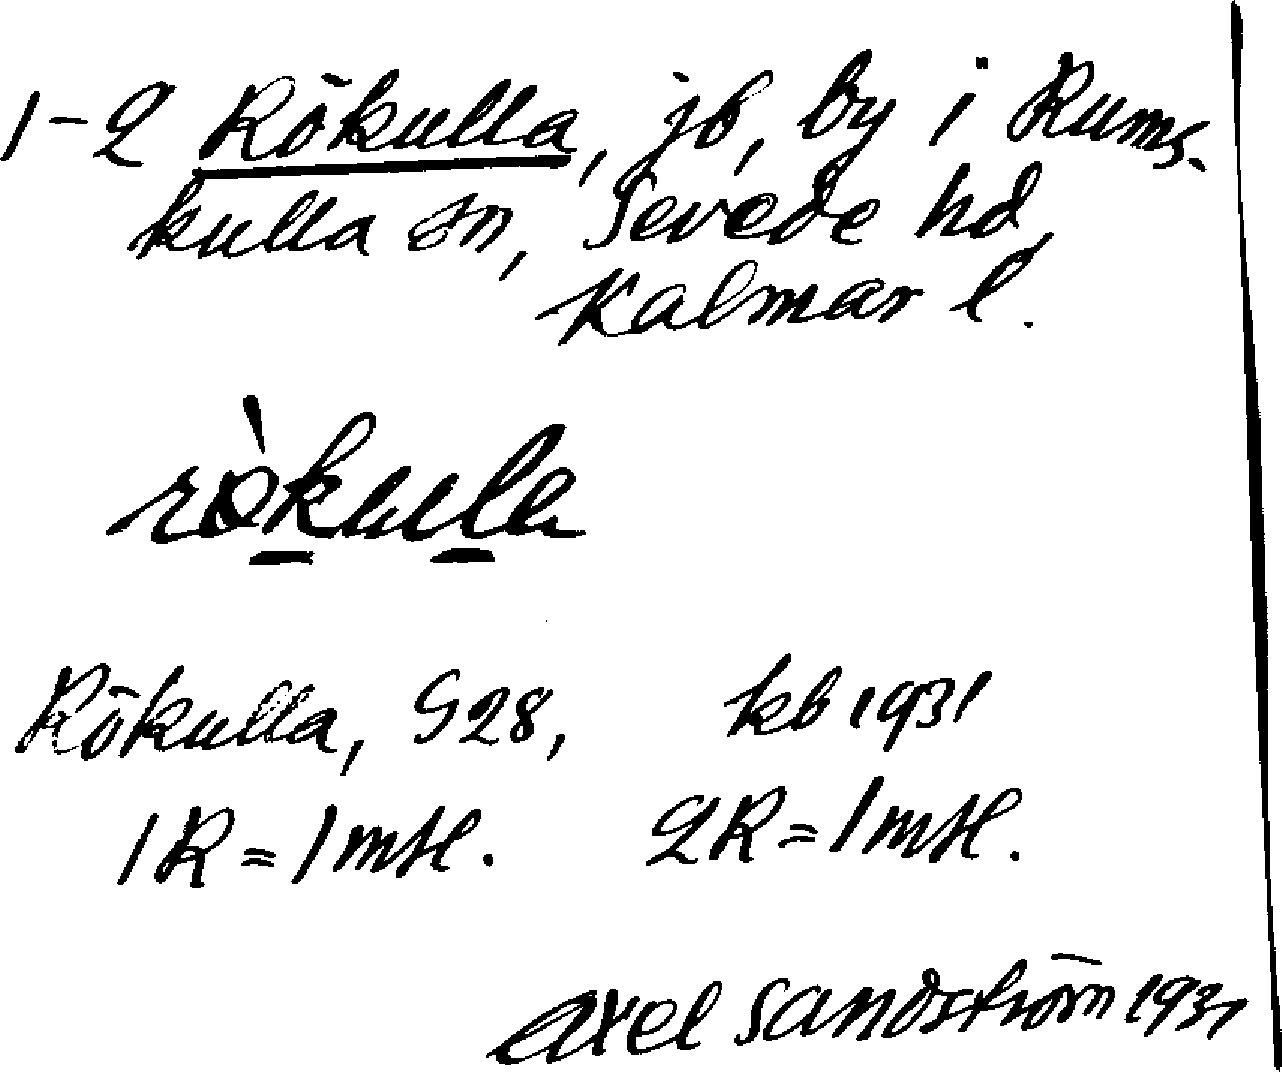 1-2 Rökulla, jb, by i Rums-
kulla sn, Sevede hd,
Kalmar l.
rò̱kuḻa
Rökulla, G28, kb 1931
1R=1mtl. 2R=1mtl.
Axel Sandström 1931